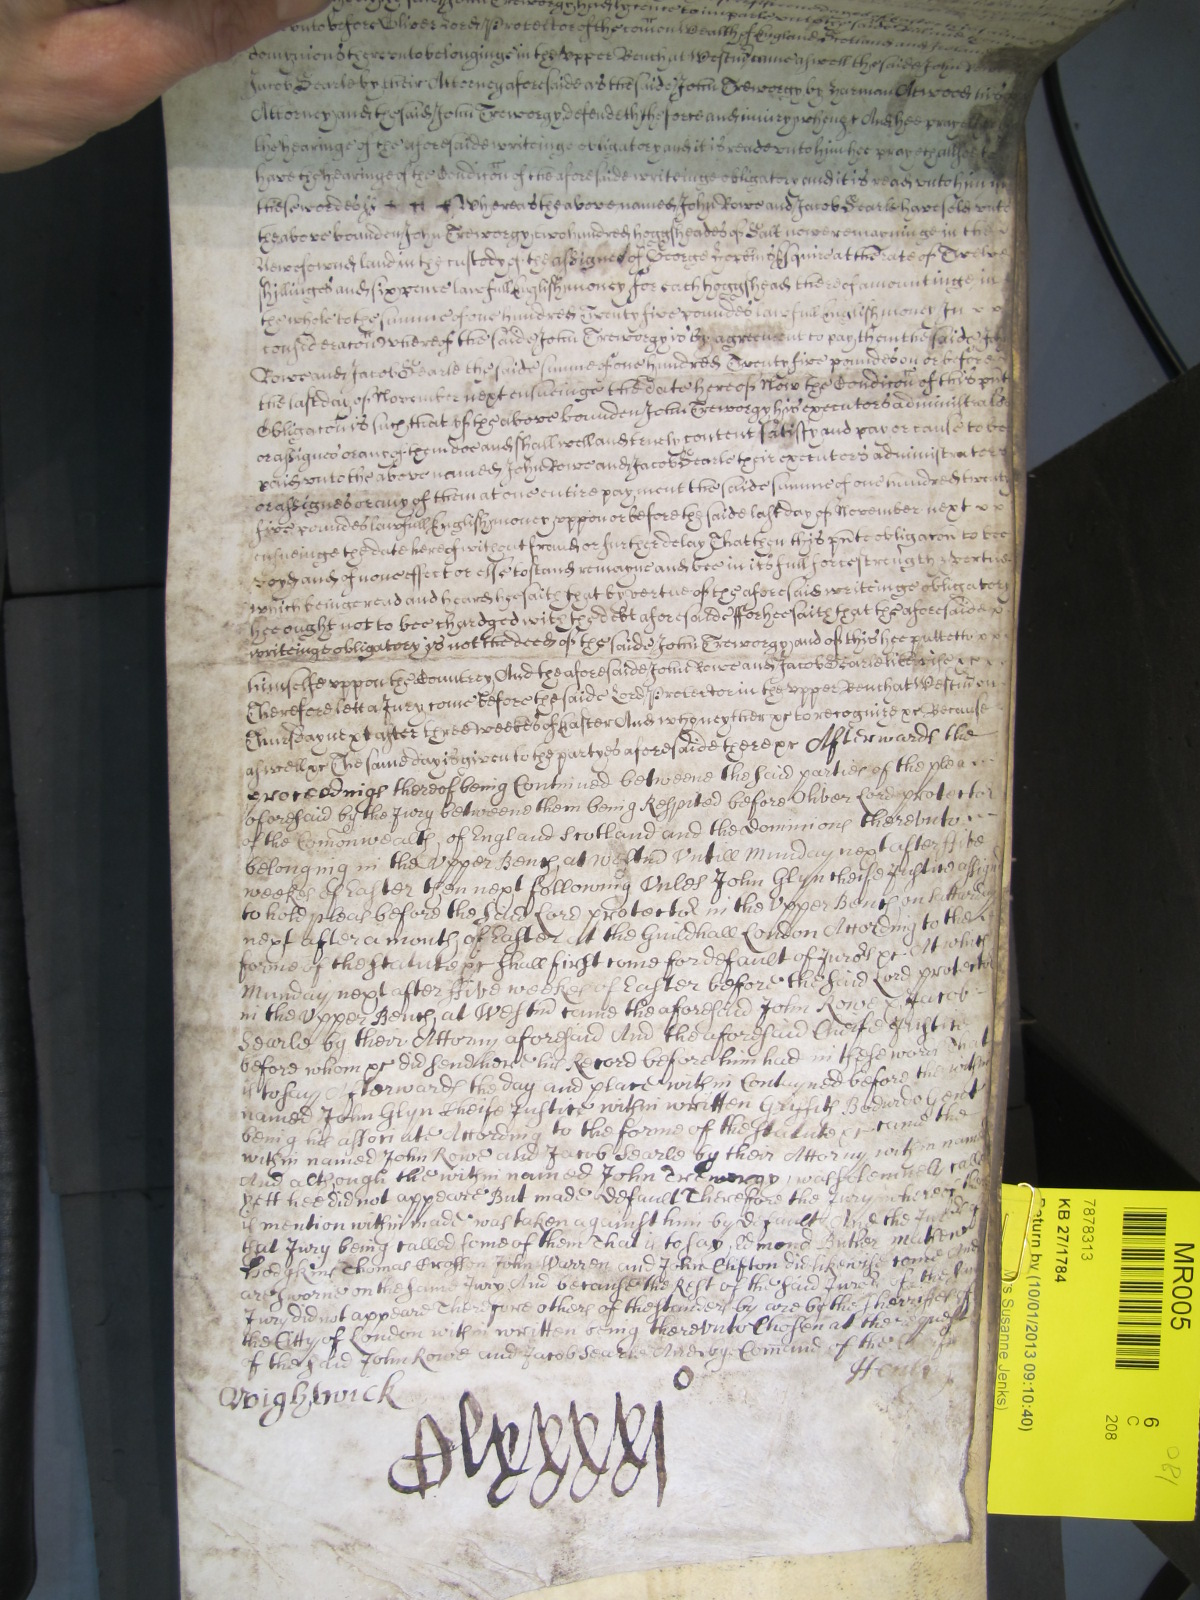 unto before Oliver Lord Protector of the com̄on Wealth of England Scotland and
dominions thereunto belonginge in the upper Bench at Westm̄ came aswell the saide John
Jacob Searle by their Attorney aforesaide as the saide John Treworgy by Harman Atwood his
Attorney and the said John Treworgy defendeth the force and iniury when &c And hee prayeth
the hearinge of the aforesaide writeinge obligatory and it is reade unto him hee prayeth alsoe to
have the hearinge of the Condic̄on of the aforesaide writeinge obligatory and it is read unto him in
these wordes Whereas the above named John Rowe and Jacob Searle have sold unto
the above bounden John Treworgy two hundred hoggsheades of Salt nowe remayninge in the
Newefownd land in the custody of the assignes of George Esquire at the rate of Twelve
shillinges and six pence lawfull English money for each hoggshead thereof amountinge in
the whole to the summe of one hundred Twenty five poundes lawfull English money In
considerac̄on whereof the said John Treworgy is by agreement to pay them the saide John
Rowe and Jacob Searle the saide summe of one hundred Twenty five poundes on or before
the last day of November next ensueinge the date hereof Now the Condic̄on of this p̄nt
Obligac̄on is such that if the above bounden John Treworgy his executors administrators
or assignes or any of them doe and shall well and truely content satisfy and pay or cause to be
paid unto the above named John Rowe and Jacob Searle their executors administrators
or assignes or any of them at one entire payment the saide summe of one hundred twenty
five poundes lawfull English money uppon or before the saide last day of November next
ensueinge the date hereof without fraud or further delay That then this p̄nte obligac̄on to bee
voyd and of none effect or else to stand remayne and bee in its full force strength & vertue
which beinge read and heard hee saith that by vertue of the aforesaid writeinge obligatory
hee ought not to bee chardged with the debt aforesaide ffor hee saith that the aforesaide
writeinge obligatory is not the deed of the saide John Treworgy and of this hee putteth
himselfe uppon the Countrey And the aforesaide John Rowe and Jacob Searle likewise &c
Therefore lett a Jury come before the saide Lord Protector in the upper Bench at Westm̄ on
Thursday next after three weekes of Easter And who neyther &c to recognize &c Because
aswell &c The same day is given to the partyes aforesaide there &c Afterwards the
proceedings thereof being Continued betweene the said parties of the plea
aforesaid by the Jury betweene them being Respited before Oliver Lord protector
of the Com̄onwealth of England Scotland and the dominions thereunto
belonging in the Upper Bench at Westm̄ Untill Munday next after ffive
weekes of Easter then next following Unles John Glyn cheife Justice assigned
to hold pleas before the said Lord protector in the Upper Bench on Satturday
next after a month of Easter At the Guildhall London According to the
forme of the Statute &c shall first come for default of Jurors &c At which
Munday next after ffive weekes of Easter before the said Lord protector
in the Upper Bench at Westm̄ came the aforesaid John Rowe & Jacob
Searle by their Attorny aforesaid And the aforesaid Cheife Justice
before whom &c did send here his Record before him had in these words That
is to say Afterwards the day and place within Contayned before the within
named John Glyn Cheife Justice within written Griffith Bodurdo Gent
being his associate According to the forme of the Statute &c came the
within named John Rowe and Jacob Searle by their Attorny within named
And although the within named John Treworgy was solemnely called
yett hee did not appeare But made default Therefore the Jury whereof
is mention within made was taken against him by default And the Jurors of
that Jury being called some of them That is to say Edmond Butler Mathew
Hodgkins Thomas Crofton John Warren and John Clifton did likewise come And
are sworne on the same Jury And because the Rest of the said Jurors of the same
Jury did not appeare Therefore others of the standers by are by the Sherriffes of
the Citty of London within written being thereunto Chosen at the request
of the said John Rowe and Jacob Searle And by Com̄and of the
Wightwick
Henly
Dlxxxxi
MR005
6
C
208
7878313
KB 27/1784
Return by (10/01/2013 09:10:40)
Mrs Susanne Jenks)
180